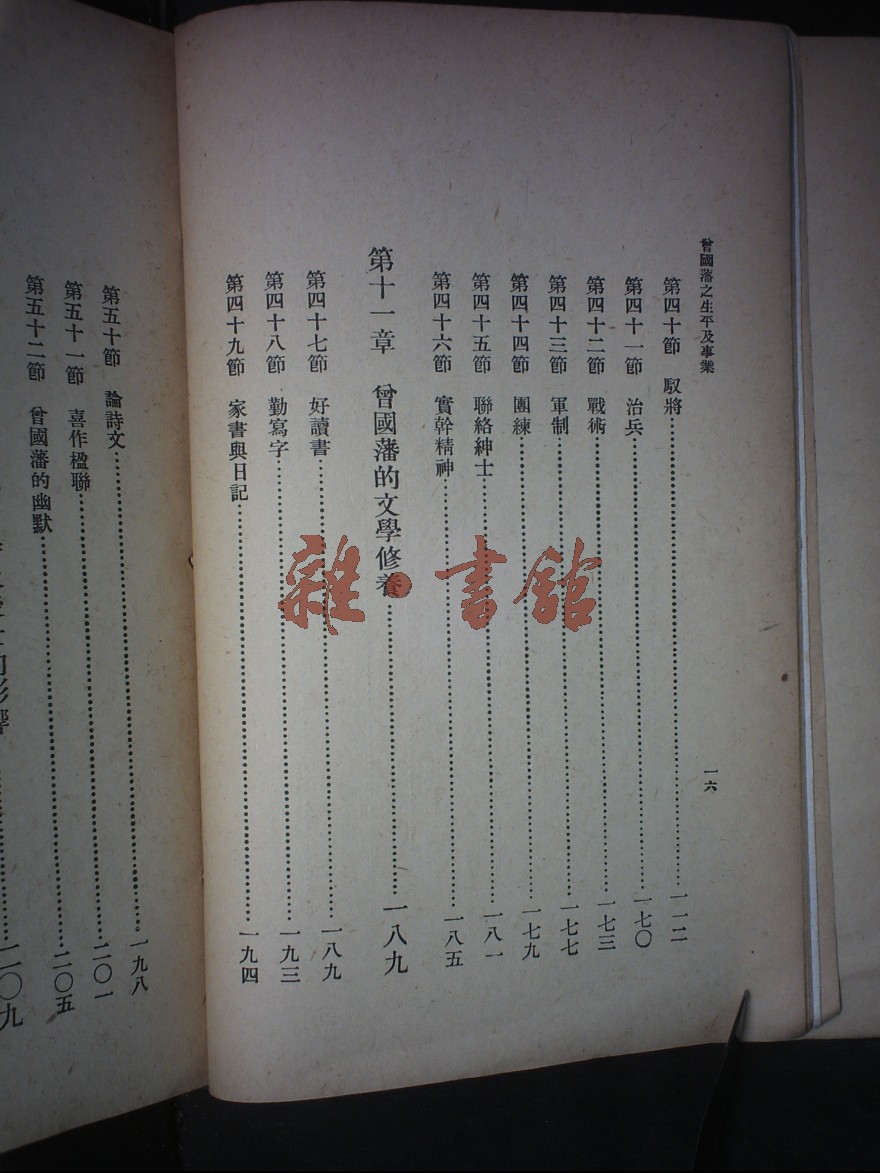 曾國藩之生平及事業
一六
第四十節 馭將……一一二
第四十一節 治兵……一七〇
第四十二節 戰術……一七三
第四十三節 軍制……一七七
第四十四節 團練……一七九
第四十五節 聯絡紳士……一八一
第四十六節 實幹精神……一八五
第十一章 曾國藩的文學修養……一八九
第四十七節 好讀書……一八九
第四十八節 勤寫字……一九三
第四十九節 家書與日記……一九四
第五十節 論詩文……一九八
第五十一節 喜作楹聯……二〇一
第五十二節 曾國藩的幽默……二〇五
影響……二〇九
雜·書館